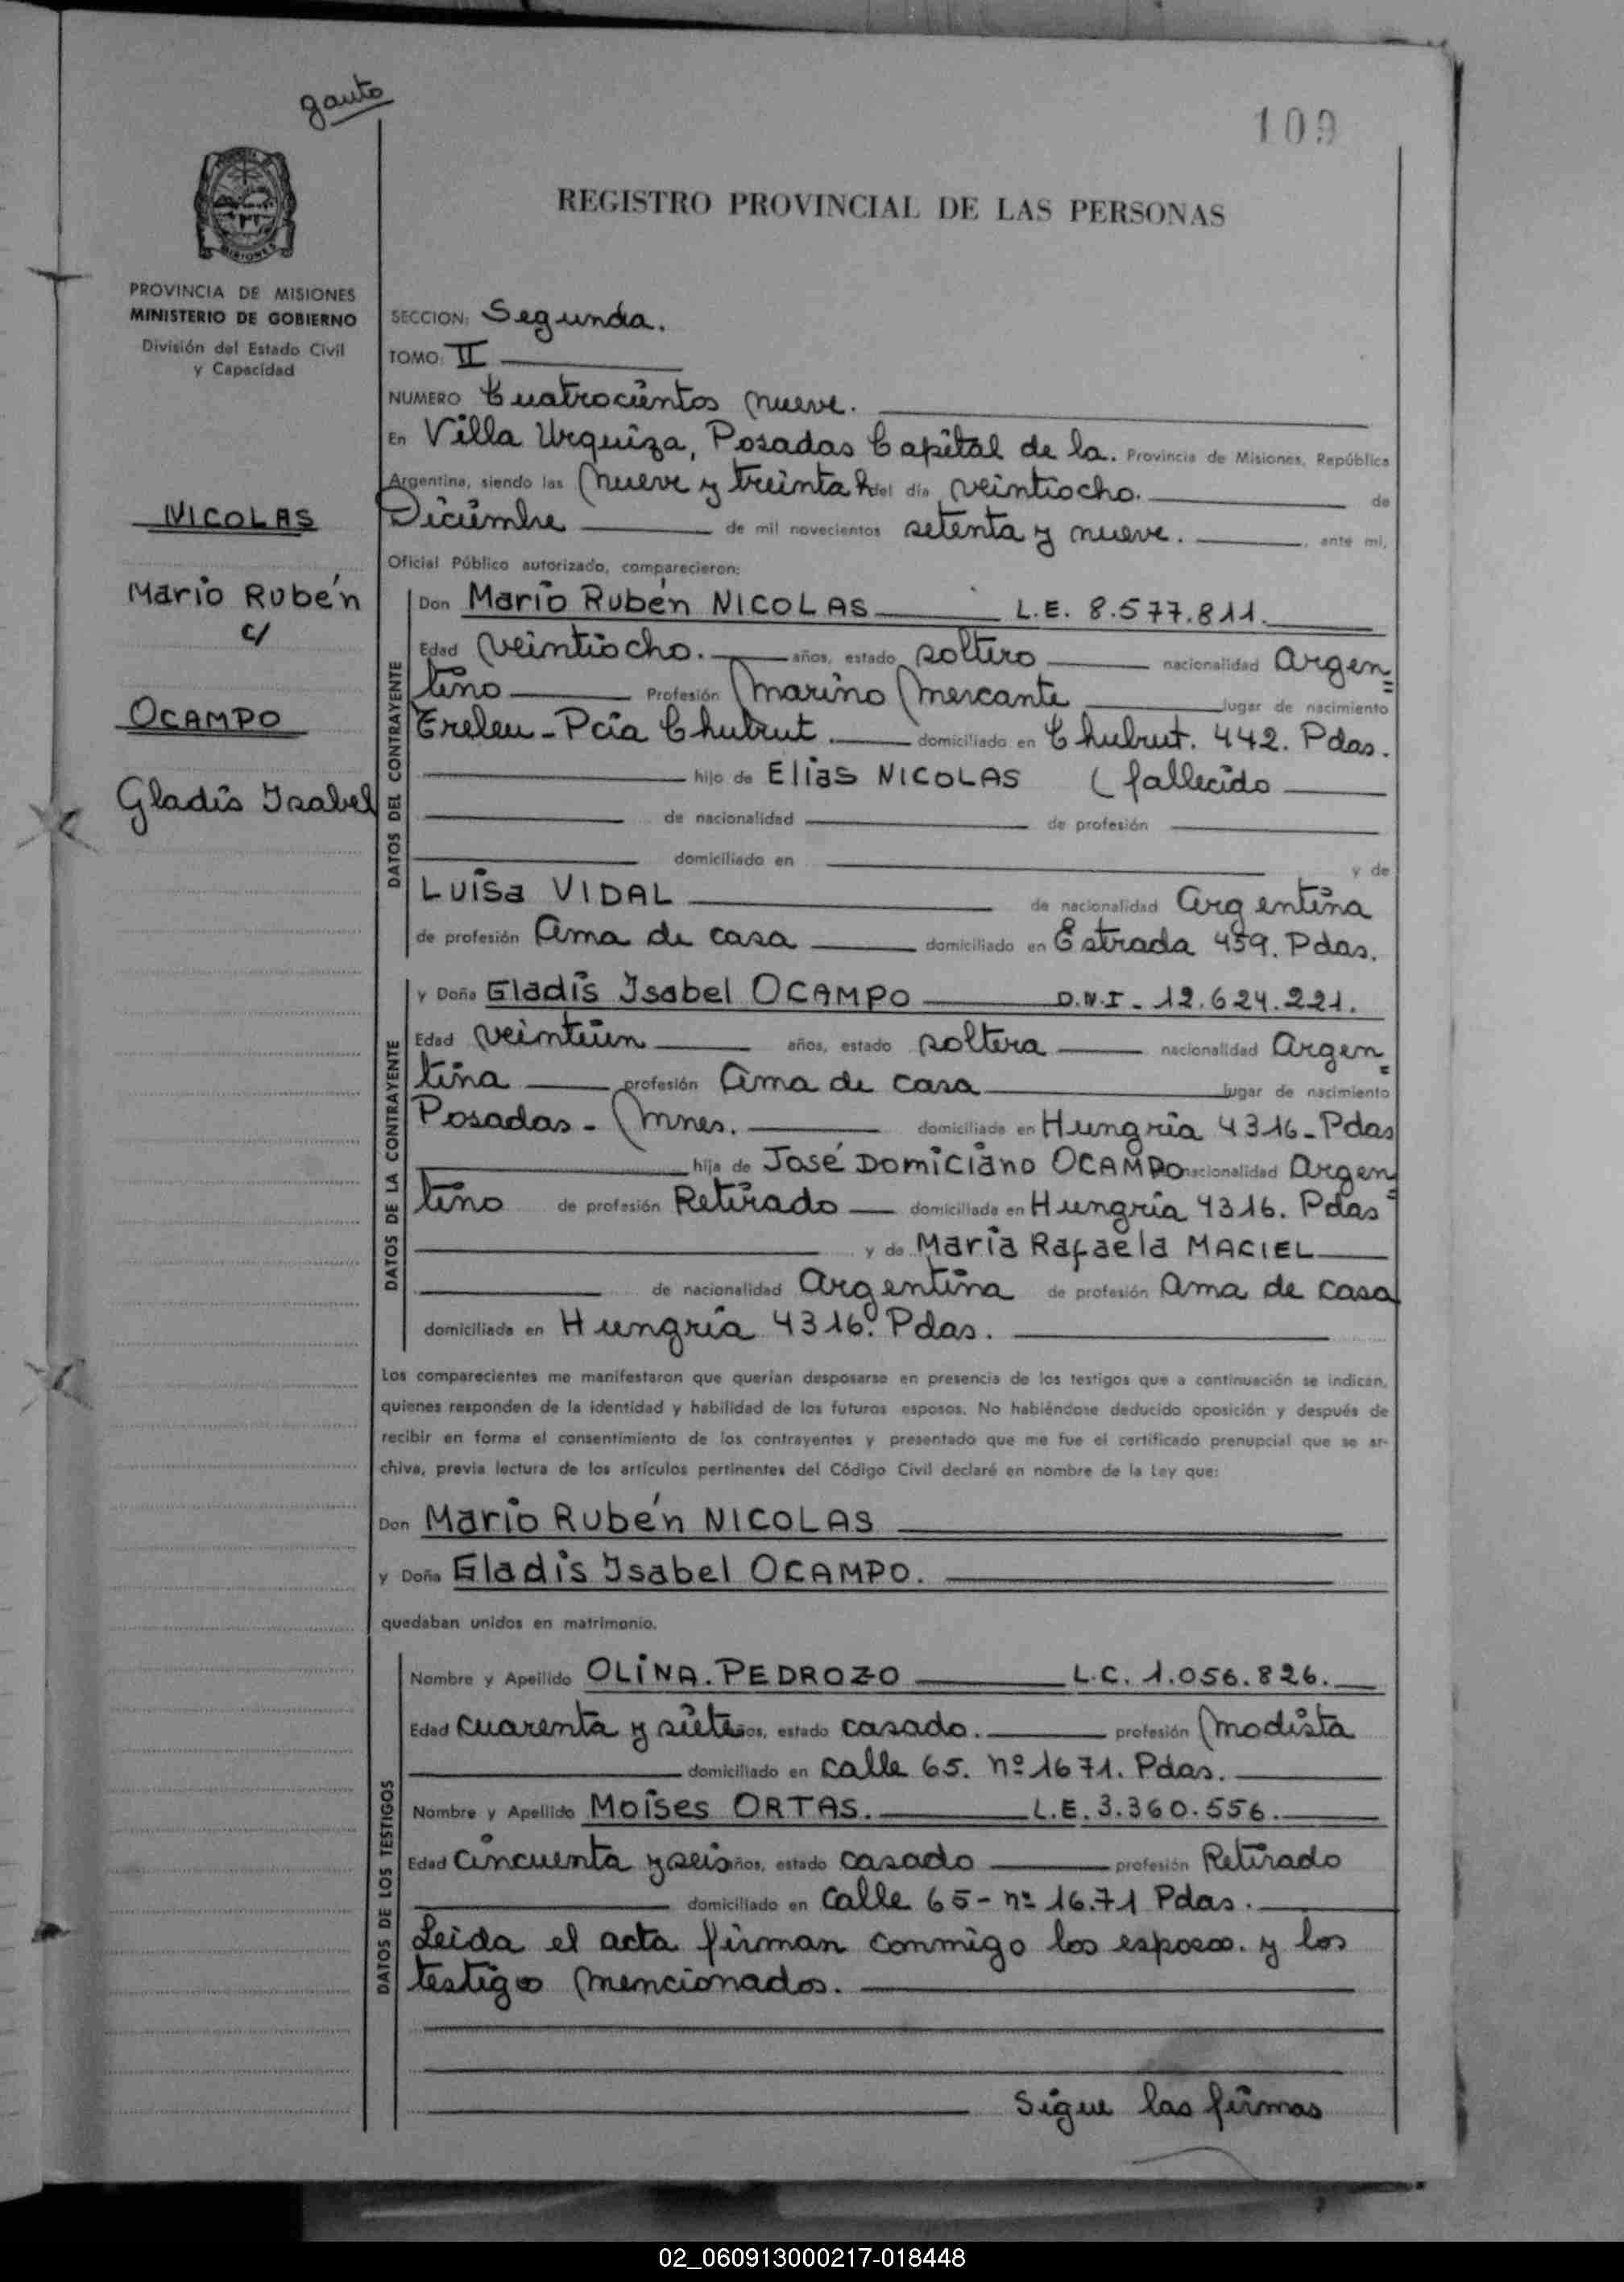 gauto
109
REGISTRO PROVINCIAL DE LAS PERSONAS
MISIONES
PROVINCIA DE MISIONES
MINISTERIO DE GOBIERNO
División del Estado Civil
y Capacidad
NICOLAS
Mario Rubén
c/
OCAMPO
Gladis Isabel
SECCION: Segunda.
TOMO: II
NUMERO Cuatrocientos nueve.
En Villa Urquiza, Posadas Capital de la. Provincia de Misiones, República
Argentina, siendo las nueve y treinta h del día veintiocho. de
Diciembre de mil novecientos setenta y nueve. , ante mi,
Oficial Público autorizado, comparecieron:
DATOS DEL CONTRAYENTE
Don Mario Rubén NICOLAS L.E. 8.577.811.
Edad veintiocho. años, estado soltero nacionalidad argen=
tino Profesión marino mercante lugar de nacimiento
Treleu - Pcia Chubut. domiciliado en Chubut. 442. Pdas.
hijo de Elias NICOLAS ( fallecido
de nacionalidad de profesión
domiciliado en y de
Luisa VIDAL de nacionalidad argentina
de profesión ama de casa domiciliado en Estrada 459. Pdas.
DATOS DE LA CONTRAYENTE
y Doña Gladis Isabel OCAMPO D.N.I - 12.624.221.
Edad veintiún años, estado soltera nacionalidad argen=
tina profesión ama de casa lugar de nacimiento
Posadas - Mnes. domiciliada en Hungria 4316 - Pdas
hija de José Domiciano OCAMPO nacionalidad argen=
tino de profesión Retirado domiciliada en Hungria 4316. Pdas
y de Maria Rafaela MACIEL
de nacionalidad argentina de profesión ama de casa
domiciliada en Hungria 4316. Pdas.
Los comparecientes me manifestaron que querían desposarse en presencia de los testigos que a continuación se indican,
quienes responden de la identidad y habilidad de los futuros esposos. No habiéndose deducido oposición y después de
recibir en forma el consentimiento de los contrayentes y presentado que me fue el certificado prenupcial que se ar-
chiva, previa lectura de los artículos pertinentes del Código Civil declaré en nombre de la Ley que:
Don Mario Rubén NICOLAS
y Doña Gladis Isabel OCAMPO.
quedaban unidos en matrimonio.
DATOS DE LOS TESTIGOS
Nombre y Apellido OLINA. PEDROZO L.C. 1.056.826.
Edad cuarenta y siete años, estado casado. profesión modista
domiciliado en calle 65. nº 1671. Pdas.
Nombre y Apellido Moises ORTAS. L.E. 3.360.556.
Edad cincuenta y seis años, estado casado profesión Retirado
domiciliado en calle 65 - nº 16.71 Pdas.
Leida el acta firman conmigo los esposos. y los
testigos mencionados.
Sigue las firmas
02_060913000217-018448